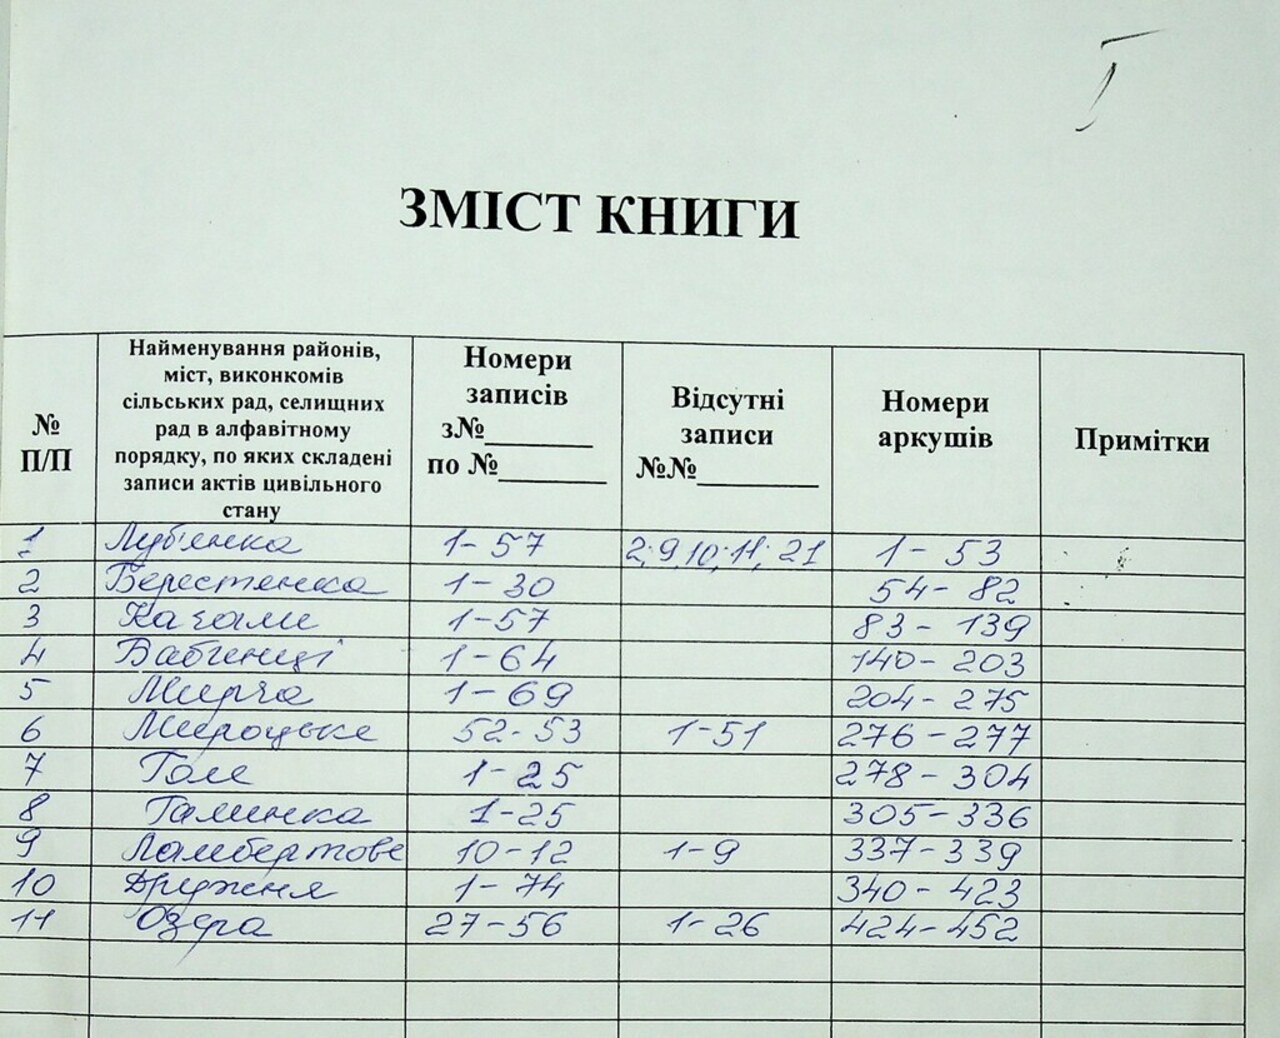 I
ЗМІСТ КНИГИ
№ П/П
Найменування районів, міст, виконкомів сільських рад, селищних рад в алфавітному порядку, по яких складені записи актів цивільного стану
Номери записів з№______ по №______
Відсутні записи №№______
Номери аркушів
Примітки
1 Луб'янка 1-57 2; 9, 10; 11; 21 1-53
2 Берестянка 1-30 54-82
3 Качали 1-57 83-139
4 Бабинці 1-64 140-203
5 Мирча 1-69 204-275
6 Мироцьке 52-53 1-51 276-277
7 1-25 278-304
8 Галинка 1-25 305-336
9 Ламбертове 10-12 1-9 337-339
10 Дружня 1-74 340-423
11 Озера 27-56 1-26 424-452